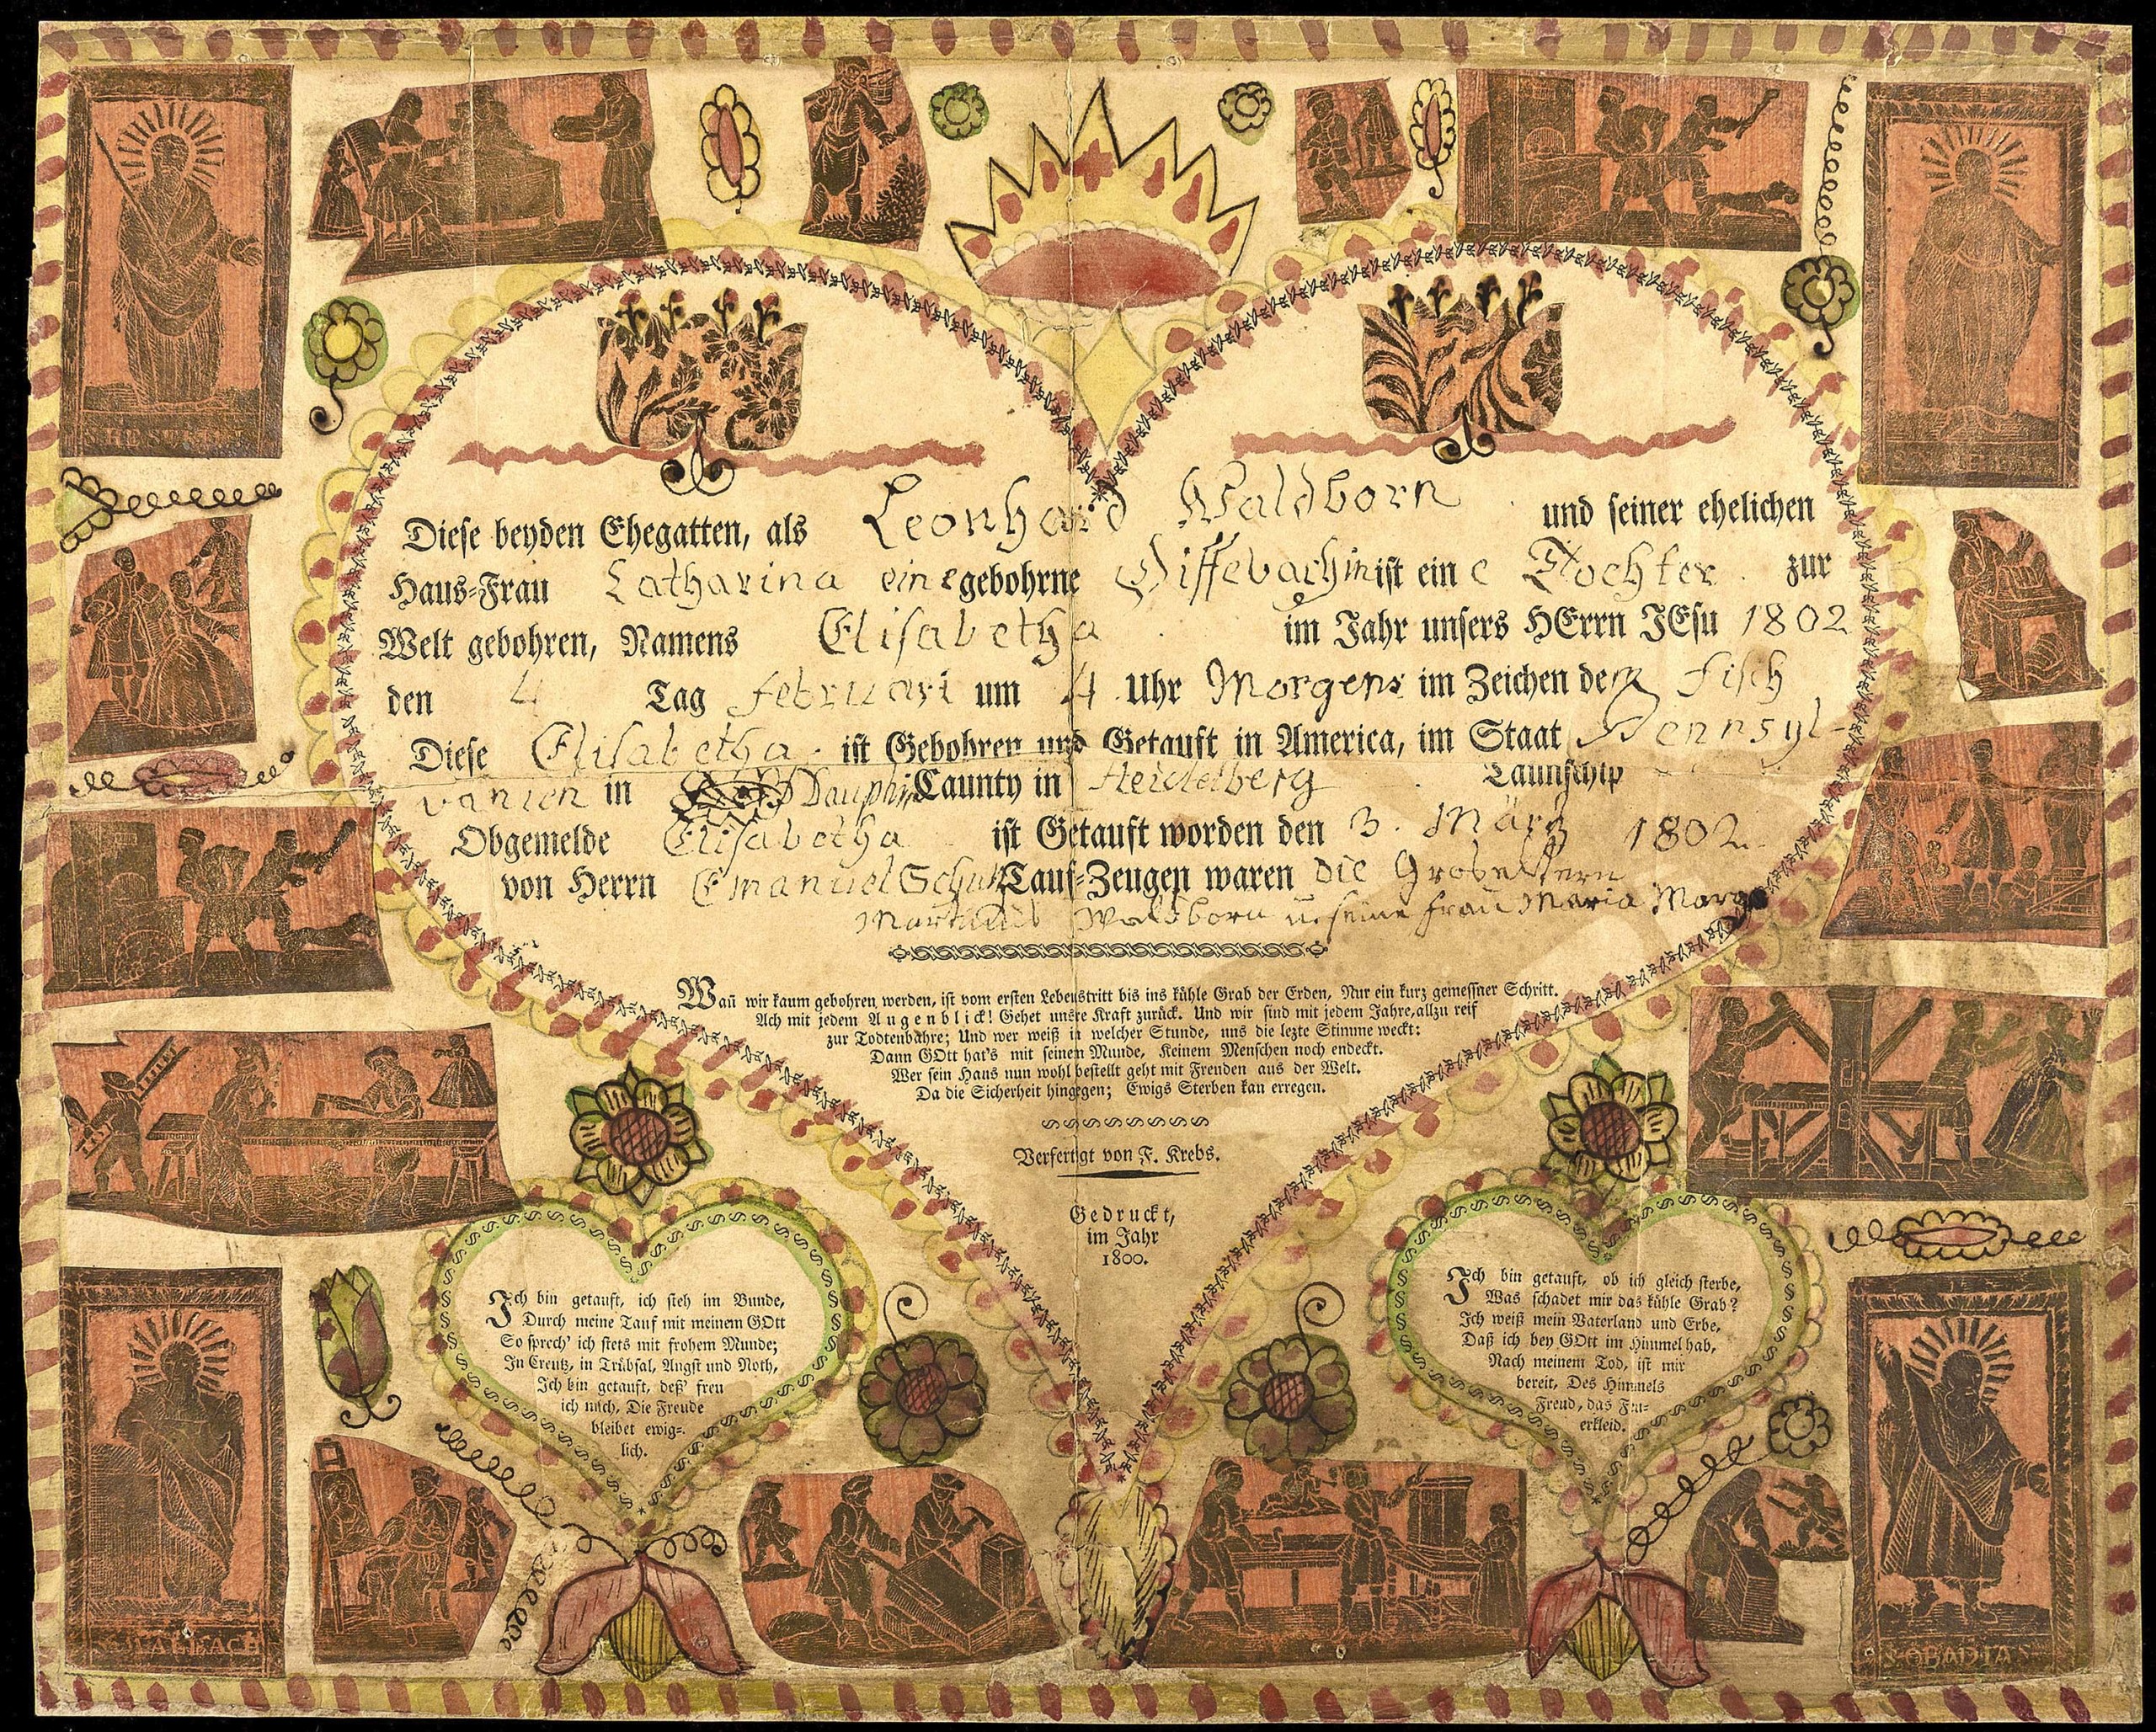 Diese beyden Ehegatten, als Leonhard Waldborn und seiner ehelichen
Haus=Frau Catharina eine gebohrne ist eine Tochter zur
Welt gebohren, Namens Elisabetha im Jahr unsers HErrn JEsu 1802
den 4 Tag Februari um 4 Uhr Morgens im Zeichen der Fisch
Diese Elisabetha ist Gebohren und Getauft in America, im Staat Pennsyl-
vanien in Dauphin Caunty in Heidelberg Taunschip
Obgemelde Elisabetha ist Getauft worden den 3. März 1802.
von Herrn Emanuel Schulz Tauf=Zeugen waren die Grosseltern
Waldborn u. seine Frau Maria
Wañ wir kaum gebohren werden, ist vom ersten Lebenstritt bis ins kühle Grab der Erden, Nur ein kurz gemessner Schritt.
Ach mit jedem Augenblick! Gehet unsre Kraft zurück. Und wir sind mit jedem Jahre, allzu reif
zur Todtenbahre; Und wer weiß in welcher Stunde, uns die lezte Stimme weckt:
Dann GOtt hat's mit seinem Munde, Keinem Menschen noch endeckt.
Wer sein Haus nun wohl bestellt geht mit Freuden aus der Welt.
Da die Sicherheit hingegen; Ewigs Sterben kan erregen.
Verfertigt von F. Krebs.
Gedruckt,
im Jahr
1800.
Ich bin getauft, ich steh im Bunde,
Durch meine Tauf mit meinem GOtt
So sprech' ich stets mit frohem Munde;
In Creutz, in Trübsal, Angst und Noth,
Ich bin getauft, deß' freu
ich mich, Die Freude
bleibet ewig=
lich.
Ich bin getauft, ob ich gleich sterbe,
Was schadet mir das kühle Grab?
Ich weiß mein Vaterland und Erbe,
Daß ich bey GOtt im Himmel hab,
Nach meinem Tod, ist mir
bereit, Des Himmels
Freud, das Fei=
erkleid.
S. OBADIAS